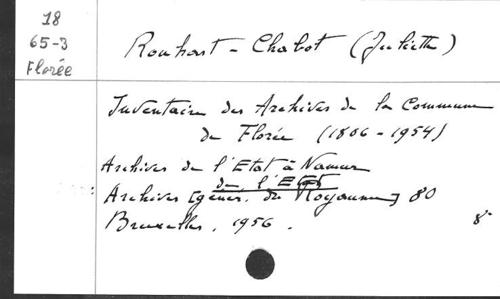 18
65-3
Florée
Rouhart-Chabot (Juliette)
Inventaire des Archives de la Commune
de Florée (1806-1954)
Archives de l'Etat à Namur
de l'Etat
Archives [génér. du Royaume] 80
Bruxelles, 1956. 8°